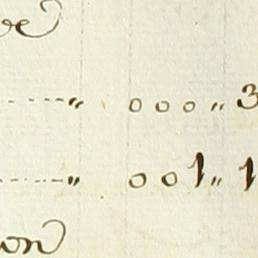 be
-----„ 000„ 3
-----„ 001„ 1
on